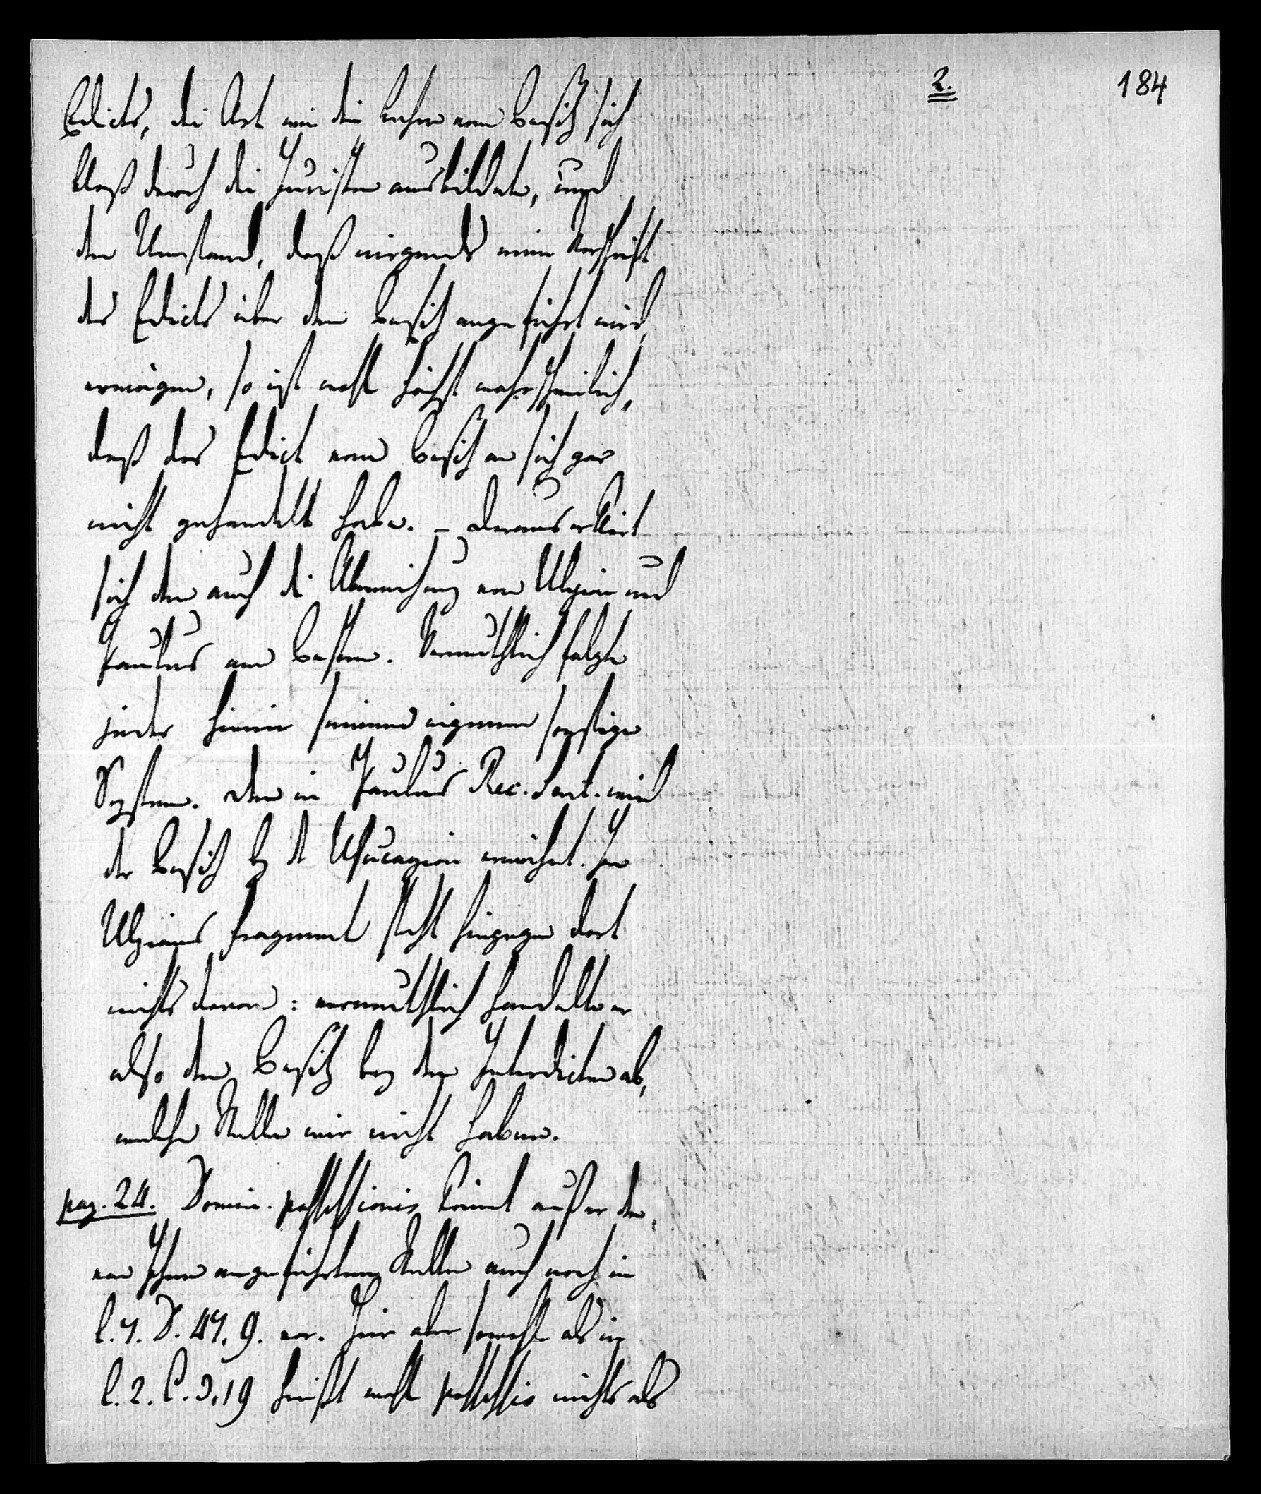 2.
184
Edicts, die Art wie die Lehre vom Besitz sich
bloß durch die Juristen ausbildete, und
den Umstand, daß nirgends eine Vorschrift
des Edicts über den Besitz angeführt wird,
erwägen, so ist wohl höchst wahrscheinlich,
daß das Edict vom Besitz an sich gar
nicht gehandelt habe. – Daraus erklärt
sich den auch die Abweichung von Ulpian und
Paulus am besten. Vermuthlich folgte
jeder hierin seinem eigenen sonstigen
System. Den in Paulus Rec. Sent. wird
der Besitz bey der Usucapion erwähnt. In
Ulpians Fragment steht hingegen dort
nichts davon: vermuthlich handelte er
also den Besitz bey den Interdicten ab,
welche Stelle wir nicht haben.
pag. 24. Domin. possessionis kömmt außer den
von Ihnen angeführten Stellen auch noch in
l. 7. D. 47. 9. vor. Hier aber sowohl als in
l. 2. C. 3. 19 heißt wohl possessio nichts als